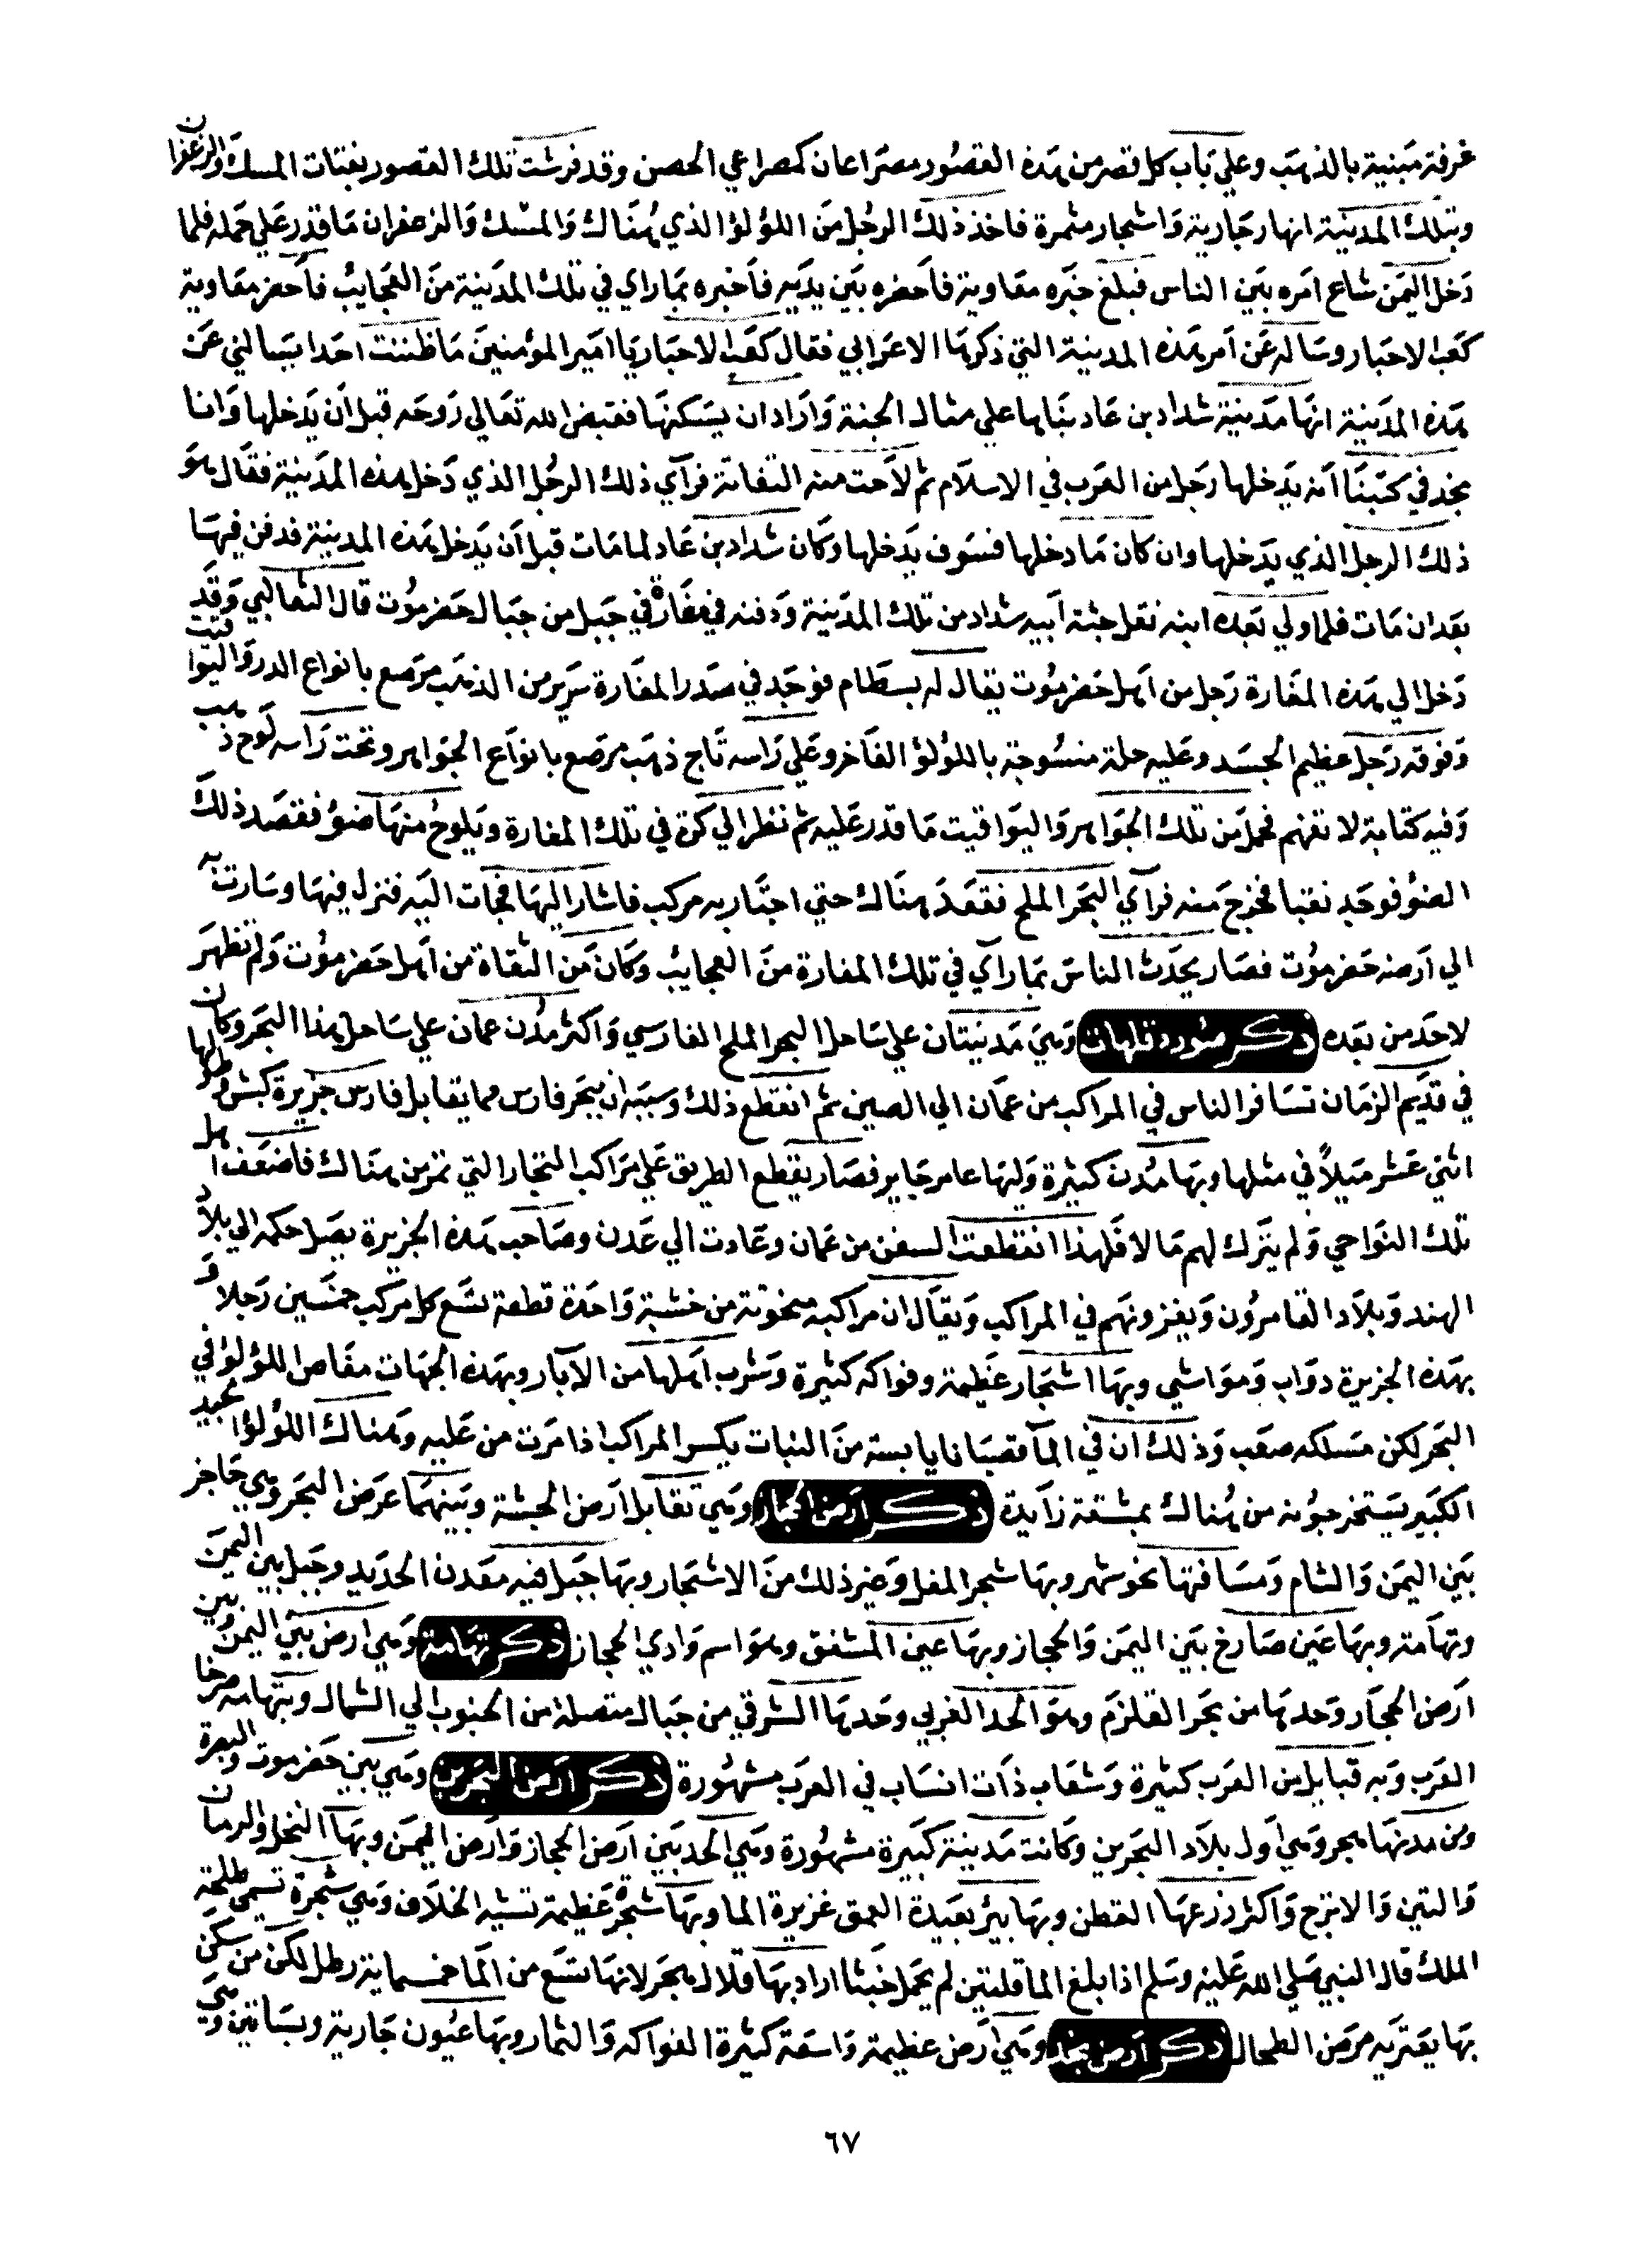 غرفة مبنية بالذهب وعلي باب كل قصر من هذه القصور مصراعان كمصراعي الحصن وقد فرشت تلك القصور بفتات المسك والزعفران
وبتلك المدينة انهار جارية واشجار مثمرة فاخذ ذلك الرجل من اللؤلؤ الذي هناك والمسك والزعفران ما قدر علي حمله فلما
دخل اليمن شاع امره بين الناس فبلغ خبره معاوية فاحضره بين يديه فاخبره بما راي في تلك المدينة من العجايب فاحضر معاوية
كعب الاحبار وساله عن امر هذه المدينة التي ذكرها الاعرابي فقال كعب الاحبار يا امير المؤمنين ما ظننت احدا يسالني عن
هذه المدينة انها مدينة شداد بن عاد بناها علي مثال الجنة واراد ان يسكنها فقبض الله تعالي روحه قبل ان يدخلها وانا
نجد في كتبنا انه يدخلها رجل من العرب في الاسلام ثم لاحت منه التفاتة فرآي ذلك الرجل الذي دخل هذه المدينة فقال هو
ذلك الرجل الذي يدخلها وان كان ما دخلها فسوف يدخلها وكان شداد بن عاد لما مات قبل ان يدخل هذه المدينة فدفن فيها
بعد ان مات فلما ولي بعده ابنه نقل جثة ابيه شداد من تلك المدينة ودفنه في مغارة في جبل من جبال حضرموت قال الثعالبي وقد
دخل الي هذه المغارة رجل من اهل حضرموت يقال له بسطام فوجد في صدر المغارة سرير من الذهب مرصع بانواع الدر واليواقيت
وفوقه رجل عظيم الجسد وعليه حلة منسوجة باللؤلؤ الفاخر وعلي راسه تاج ذهب مرصع بانواع الجواهر وتحت راسه لوح ذهب
وفيه كتابة لا تفهم فحمل من تلك الجواهر واليواقيت ما قدر عليه ثم نظر الي كوة في تلك المغارة ويلوح منها ضؤ فقصد ذلك
الضؤ فوجد نقبا فخرج منه فرآي البحر الملح فقعد هناك حتي اجتاز به مركب فاشار اليها فجات اليه فنزل فيها وسارت به
الي ارضه حضرموت فصار يحدث الناس بما رآي في تلك المغارة من العجايب وكان من الثقاة من اهل حضرموت ولم تظهر
لاحد من بعده ذكر صور وقلهات وهي مدينتان علي ساحل البحر الملح الفارسي واكثر مدن عمان علي ساحل هذا البحر وكان
في قديم الزمان تسافر الناس في المراكب من عمان الي الصين ثم انقطع ذلك وسببه ان ببحر فارس مما يقابل فارس جزيرة كيش طولها
اثني عشر ميلا في مثلها وبها مدن كثيرة ولها عامر جاير فصار يقطع الطريق علي مراكب التجار التي تمر من هناك فاضعف اهل
تلك النواحي ولم يترك لهم مالا فلهذا انقطعت السفن من عمان وعادت الي عدن وصاحب هذه الجزيرة يصل حكمه الي بلاد
الهند وبلاد القامرون ويغزونهم في المراكب ويقال ان مراكبه منحوتة من خشبة واحدة قطعة تسع كل مركب خمسين رجلا و
بهذه الجزيرة دواب ومواشي وبها اشجار عظيمة وفواكه كثيرة وشرب اهلها من الآبار وبهذه الجهات مغاص اللؤلؤ في
البحر لكن مسلكه صعب وذلك ان في المآ قصبا نابا يابسة من النبات يكسر المراكب اذا مرت من عليه وهناك اللؤلؤ الجيد
الكبير يستخرجونه من هناك بمشقة زايدة ذكر ارض الحجاز وهي تقابل ارض الحبشة وبينهما عرض البحر وهي حاجز
بين اليمن والشام ومسافتها نحو شهر وبها شجر المقل وغير ذلك من الاشجار وبها جبل فيه معدن الحديد وجبل بين اليمن
وتهامة وبها عين صارخ بين اليمن والحجاز وبها عين المشفق وهو اسم وادي الحجاز ذكر تهامة وهي ارض بين اليمن وبين
ارض الحجاز وحدها من بحر القلزم وهو الحد الغربي وحدها الشرقي من جبال متصلة من الجنوب الي الشمال وبتهامه
العرب وبه قبايل من العرب كثيرة وشعاب ذات انساب في العرب مشهورة ذكر ارض البحرين وهي بين حضرموت والبصرة
ومن مدنها هجر وهي اول بلاد البحرين وكانت مدينة كبيرة مشهورة وهي الحد بين ارض الحجاز وارض اليمن وبها النخل والرمان
والتين والاترج واكثر زرعها القطن وبها بئر بعيدة العمق غزيرة الما وبها شجرة عظيمة تشبه الخلاف وهي شجرة تسمي طلحة
الملك قال النبي صلي الله عليه وسلم اذا بلغ الما قلتين لم يحمل خبثا اراد بها قلال هجر لانها تسع من المآ خمسماية رطل لكن من سكن
بها يعتريه مرض الطحال ذكر ارض وهي ارض عظيمة واسعة كثيرة الفواكه والثمار وبها عيون جارية وبساتين وهي
٦٧